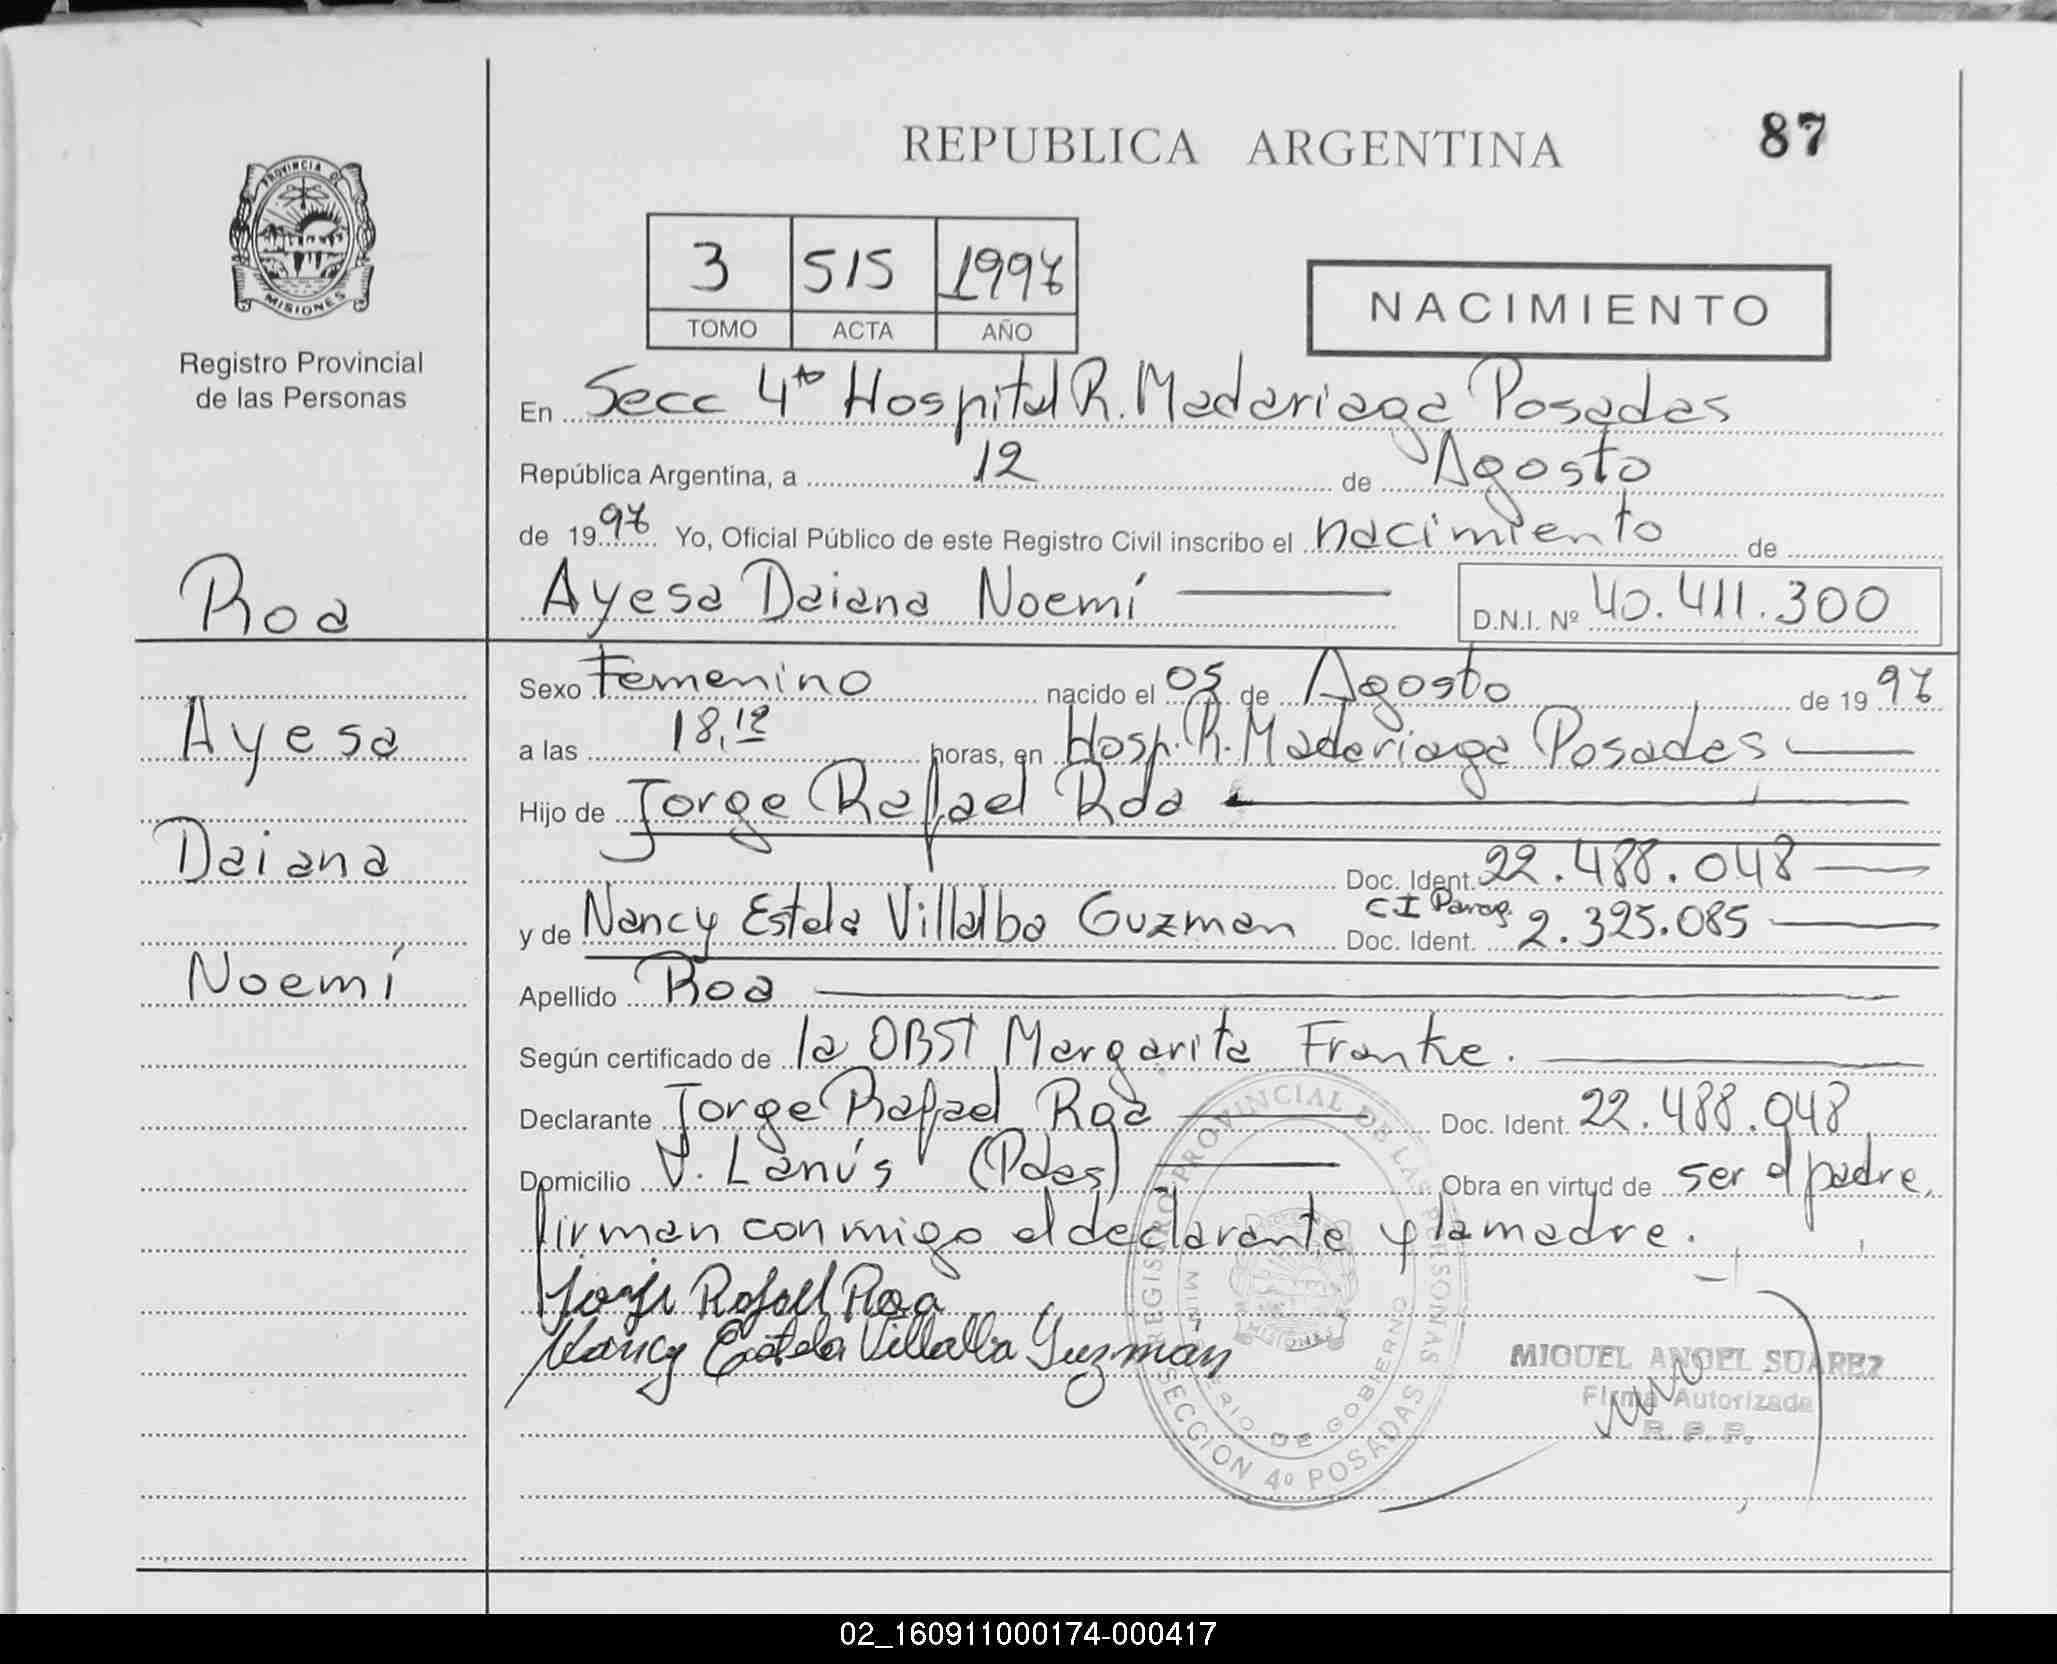 REPUBLICA ARGENTINA
87
PROVINCIA DE
MISIONES
Registro Provincial
de las Personas
3 515 1997
TOMO ACTA AÑO
NACIMIENTO
En Secc 4ta Hospital R. Madariaga Posadas
República Argentina, a 12 de Agosto
de 1997 Yo, Oficial Público de este Registro Civil inscribo el nacimiento de
Ayesa Daiana Noemí D.N.I. Nº 40.411.300
Roa
Ayesa
Daiana
Noemí
Sexo Femenino nacido el 05 de Agosto de 1997
a las 18,12 horas, en Hosp. R. Madariaga Posadas
Hijo de Jorge Rafael Roa
Doc. Ident. 22.488.048
y de Nancy Estela Villalba Guzman Doc. Ident. CI Parag. 2.325.085
Apellido Roa
Según certificado de la OBST Margarita Franke.
Declarante Jorge Rafael Roa Doc. Ident. 22.488.048
Domicilio V. Lanús (Pdas) Obra en virtud de ser el padre,
firman conmigo el declarante y la madre.
Jorge Rafael Roa
Nancy Estela Villalba Guzmán
REGISTRO PROVINCIAL DE LAS PERSONAS
MINISTERIO DE GOBIERNO
SECCION 4º POSADAS
MIGUEL ANGEL SUAREZ
Firma Autorizada
R. P. P.
02_160911000174-000417